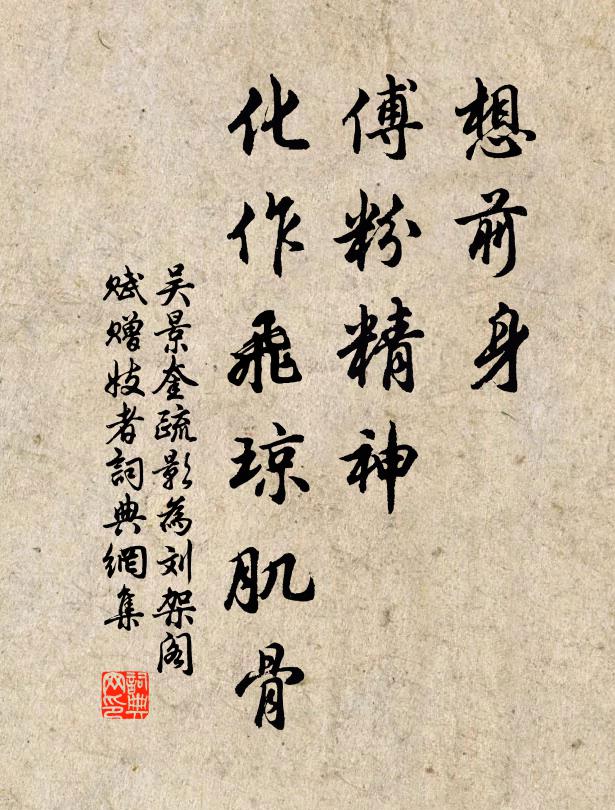 想前身
傅粉精神
化作飛琼肌骨
吴景奎疏影為刘架阁
赋赠妓者詞典網集
詞典
网印